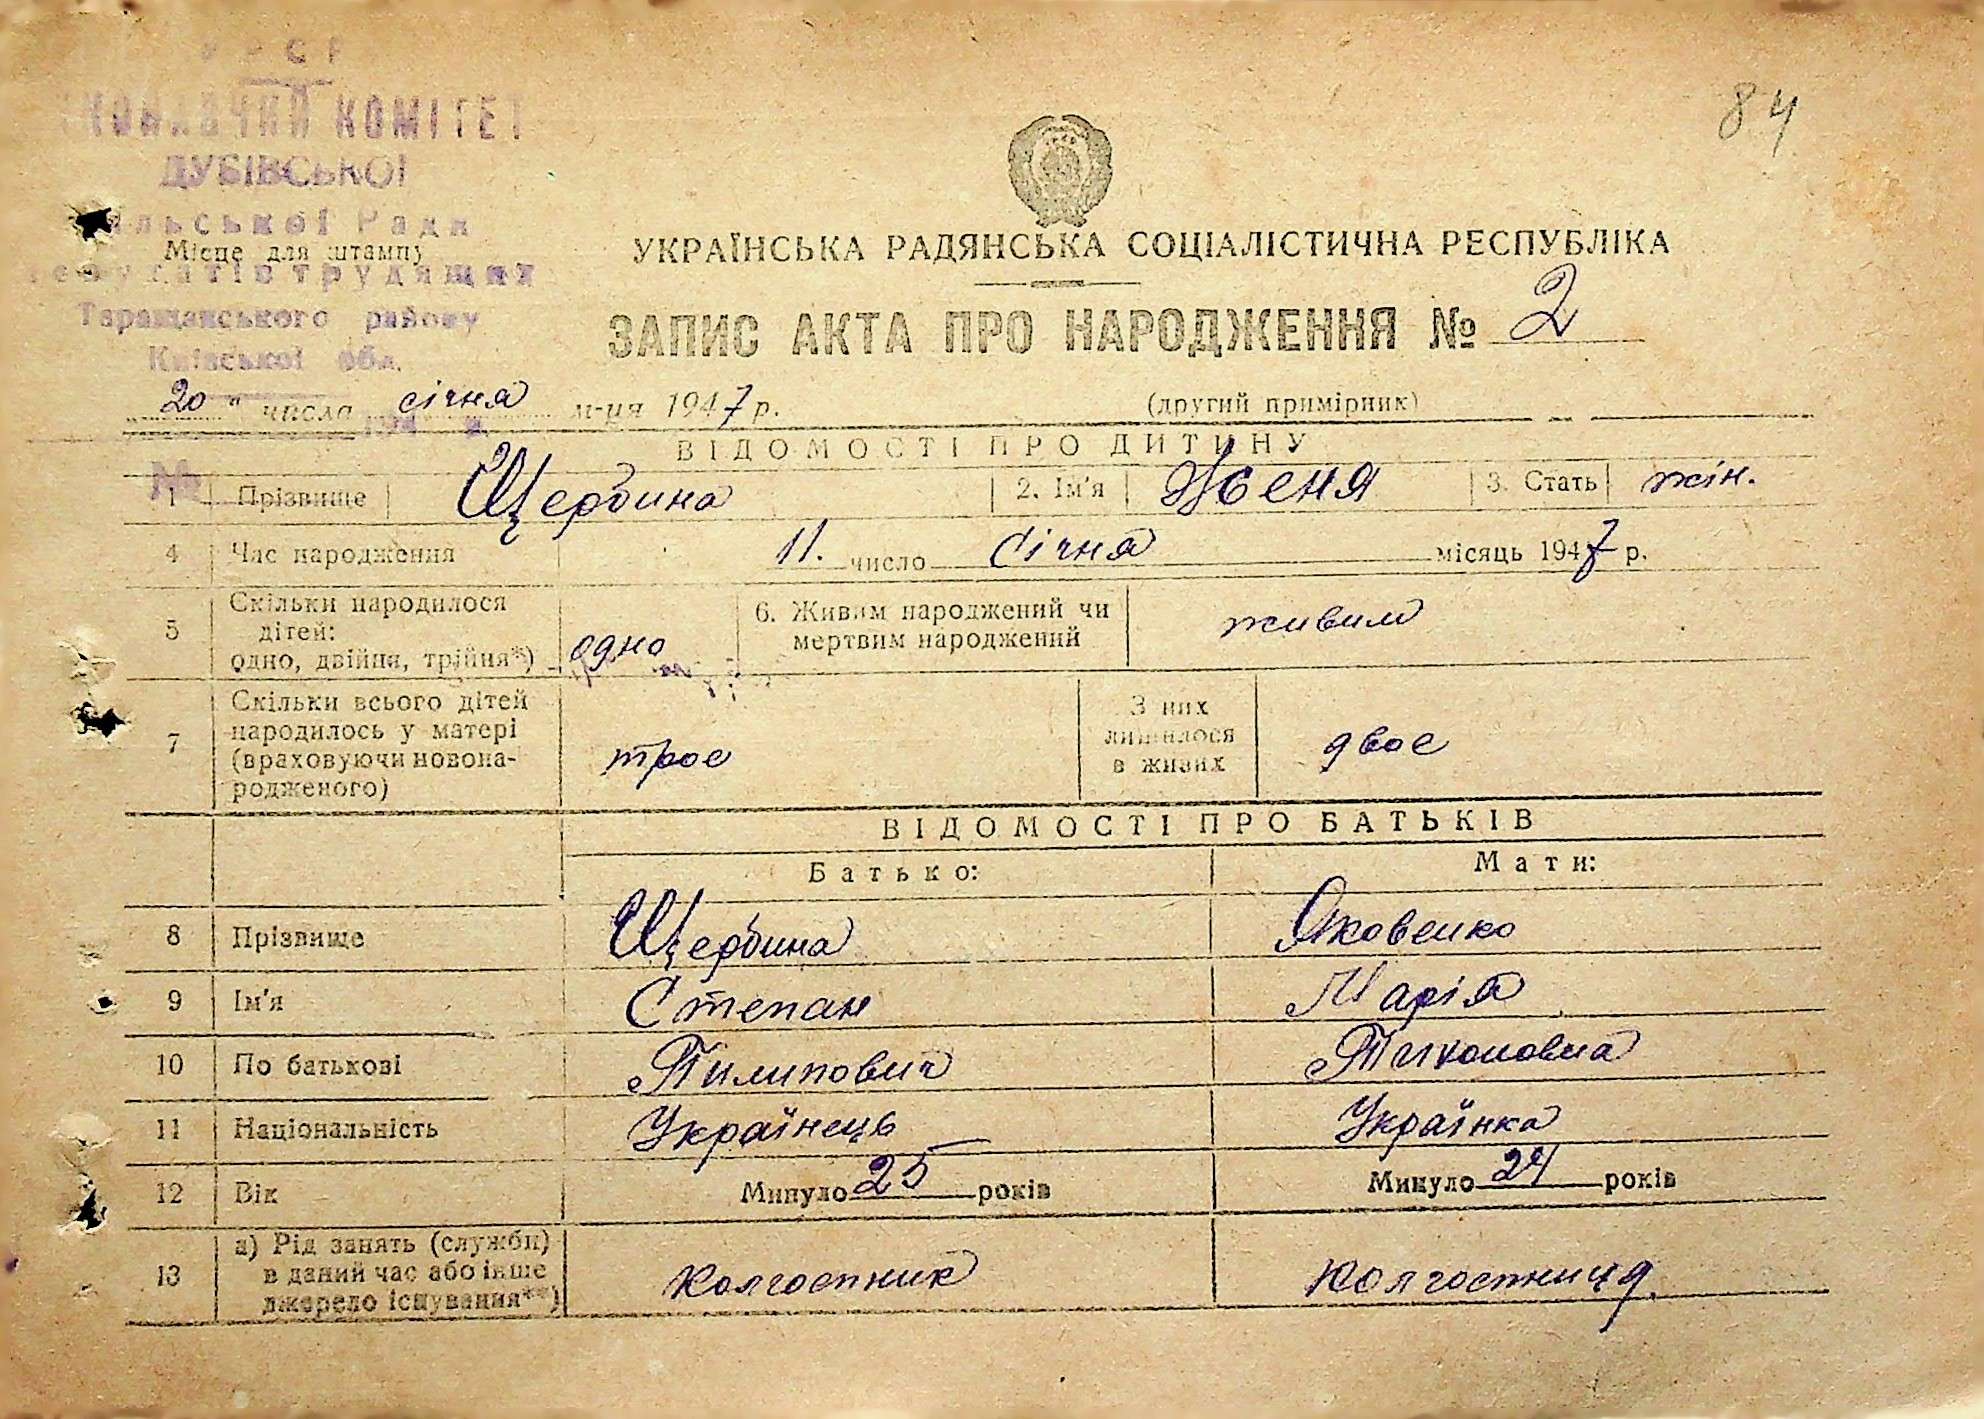 УРСР
ВИКОНАВЧИЙ КОМІТЕТ
ДУБІВСЬКОЇ
Сільської Ради
депутатів трудящих
Таращанського району
Київської обл.
Місце для штампу
84
УКРАЇНСЬКА РАДЯНСЬКА СОЦІАЛІСТИЧНА РЕСПУБЛІКА
ЗАПИС АКТА ПРО НАРОДЖЕННЯ № 2
20 " числа січня м-ця 1947 р. (другий примірник)
ВІДОМОСТІ ПРО ДИТИНУ
№
1 Прізвище Щербина 2. Ім'я Женя 3. Стать жін.
4 Час народження 11. число Січня місяць 1947 р.
5 Скільки народилося дітей: одно, двійня, трійня*) одно 6. Живим народжений чи мертвим народжений живим
7 Скільки всього дітей народилось у матері (враховуючи новонародженого) троє З них лишилося в живих двоє
ВІДОМОСТІ ПРО БАТЬКІВ
Батько: Мати:
8 Прізвище Щербина Яковенко
9 Ім'я Степан Марія
10 По батькові Пилипович Тихоновна
11 Національність Українець Українка
12 Вік Минуло 25 років Минуло 24 років
13 а) Рід занять (служби) в даний час або інше джерело існування**) Колгоспник Колгоспниця